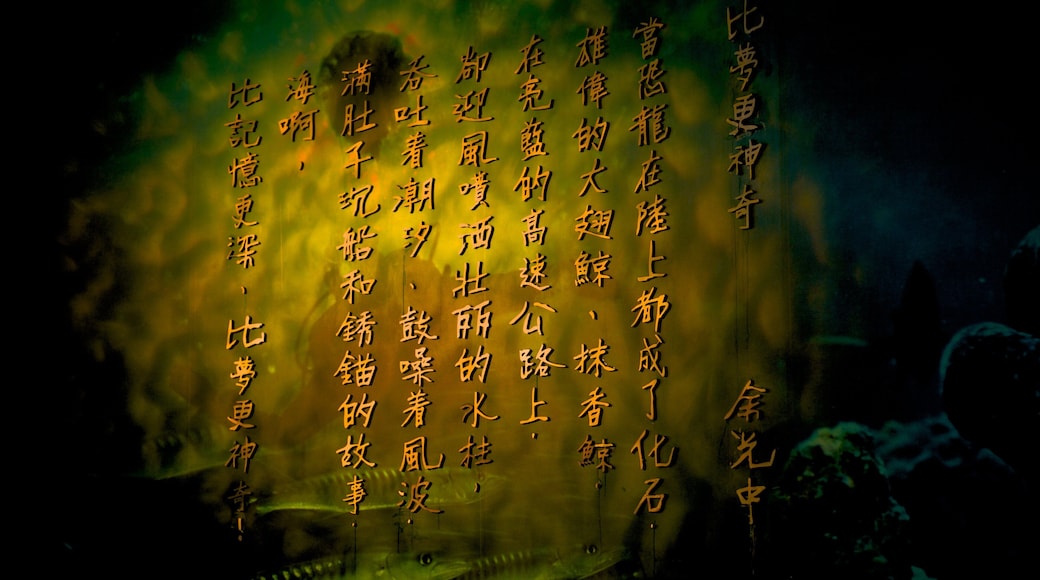 比夢更神奇 余光中
當恐龍在陸上都成了化石.
雄偉的大翅鯨、抹香鯨
在亮藍的高速公路上.
卻迎風噴洒壯丽的水柱,
吞吐着潮汐、鼓噪着風波.
滿肚子沉船和銹錨的故事.
海啊,
比記憶更深、比夢更神奇!